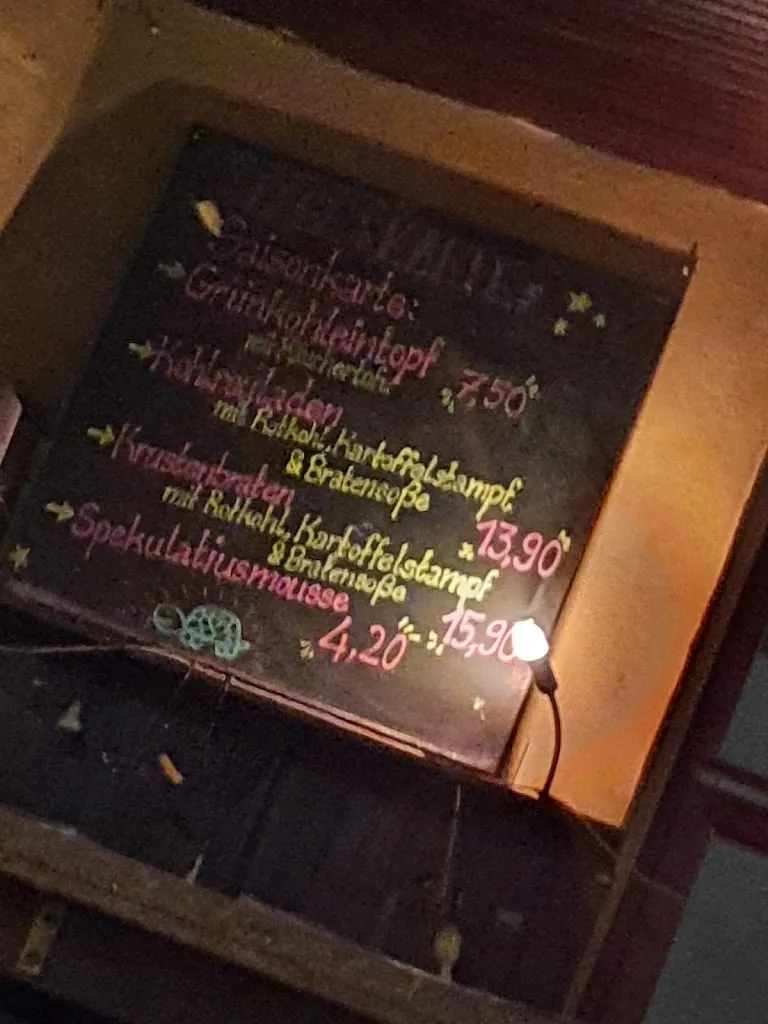 Saisonkarte:
Grünkohleintopf
7,50
Kohlrouladen
mit Rotkohl, Kartoffelstampf
& Bratensoße
13,90
Krustenbraten
mit Rotkohl, Kartoffelstampf
& Bratensoße
15,90
Spekulatiusmousse
4,20